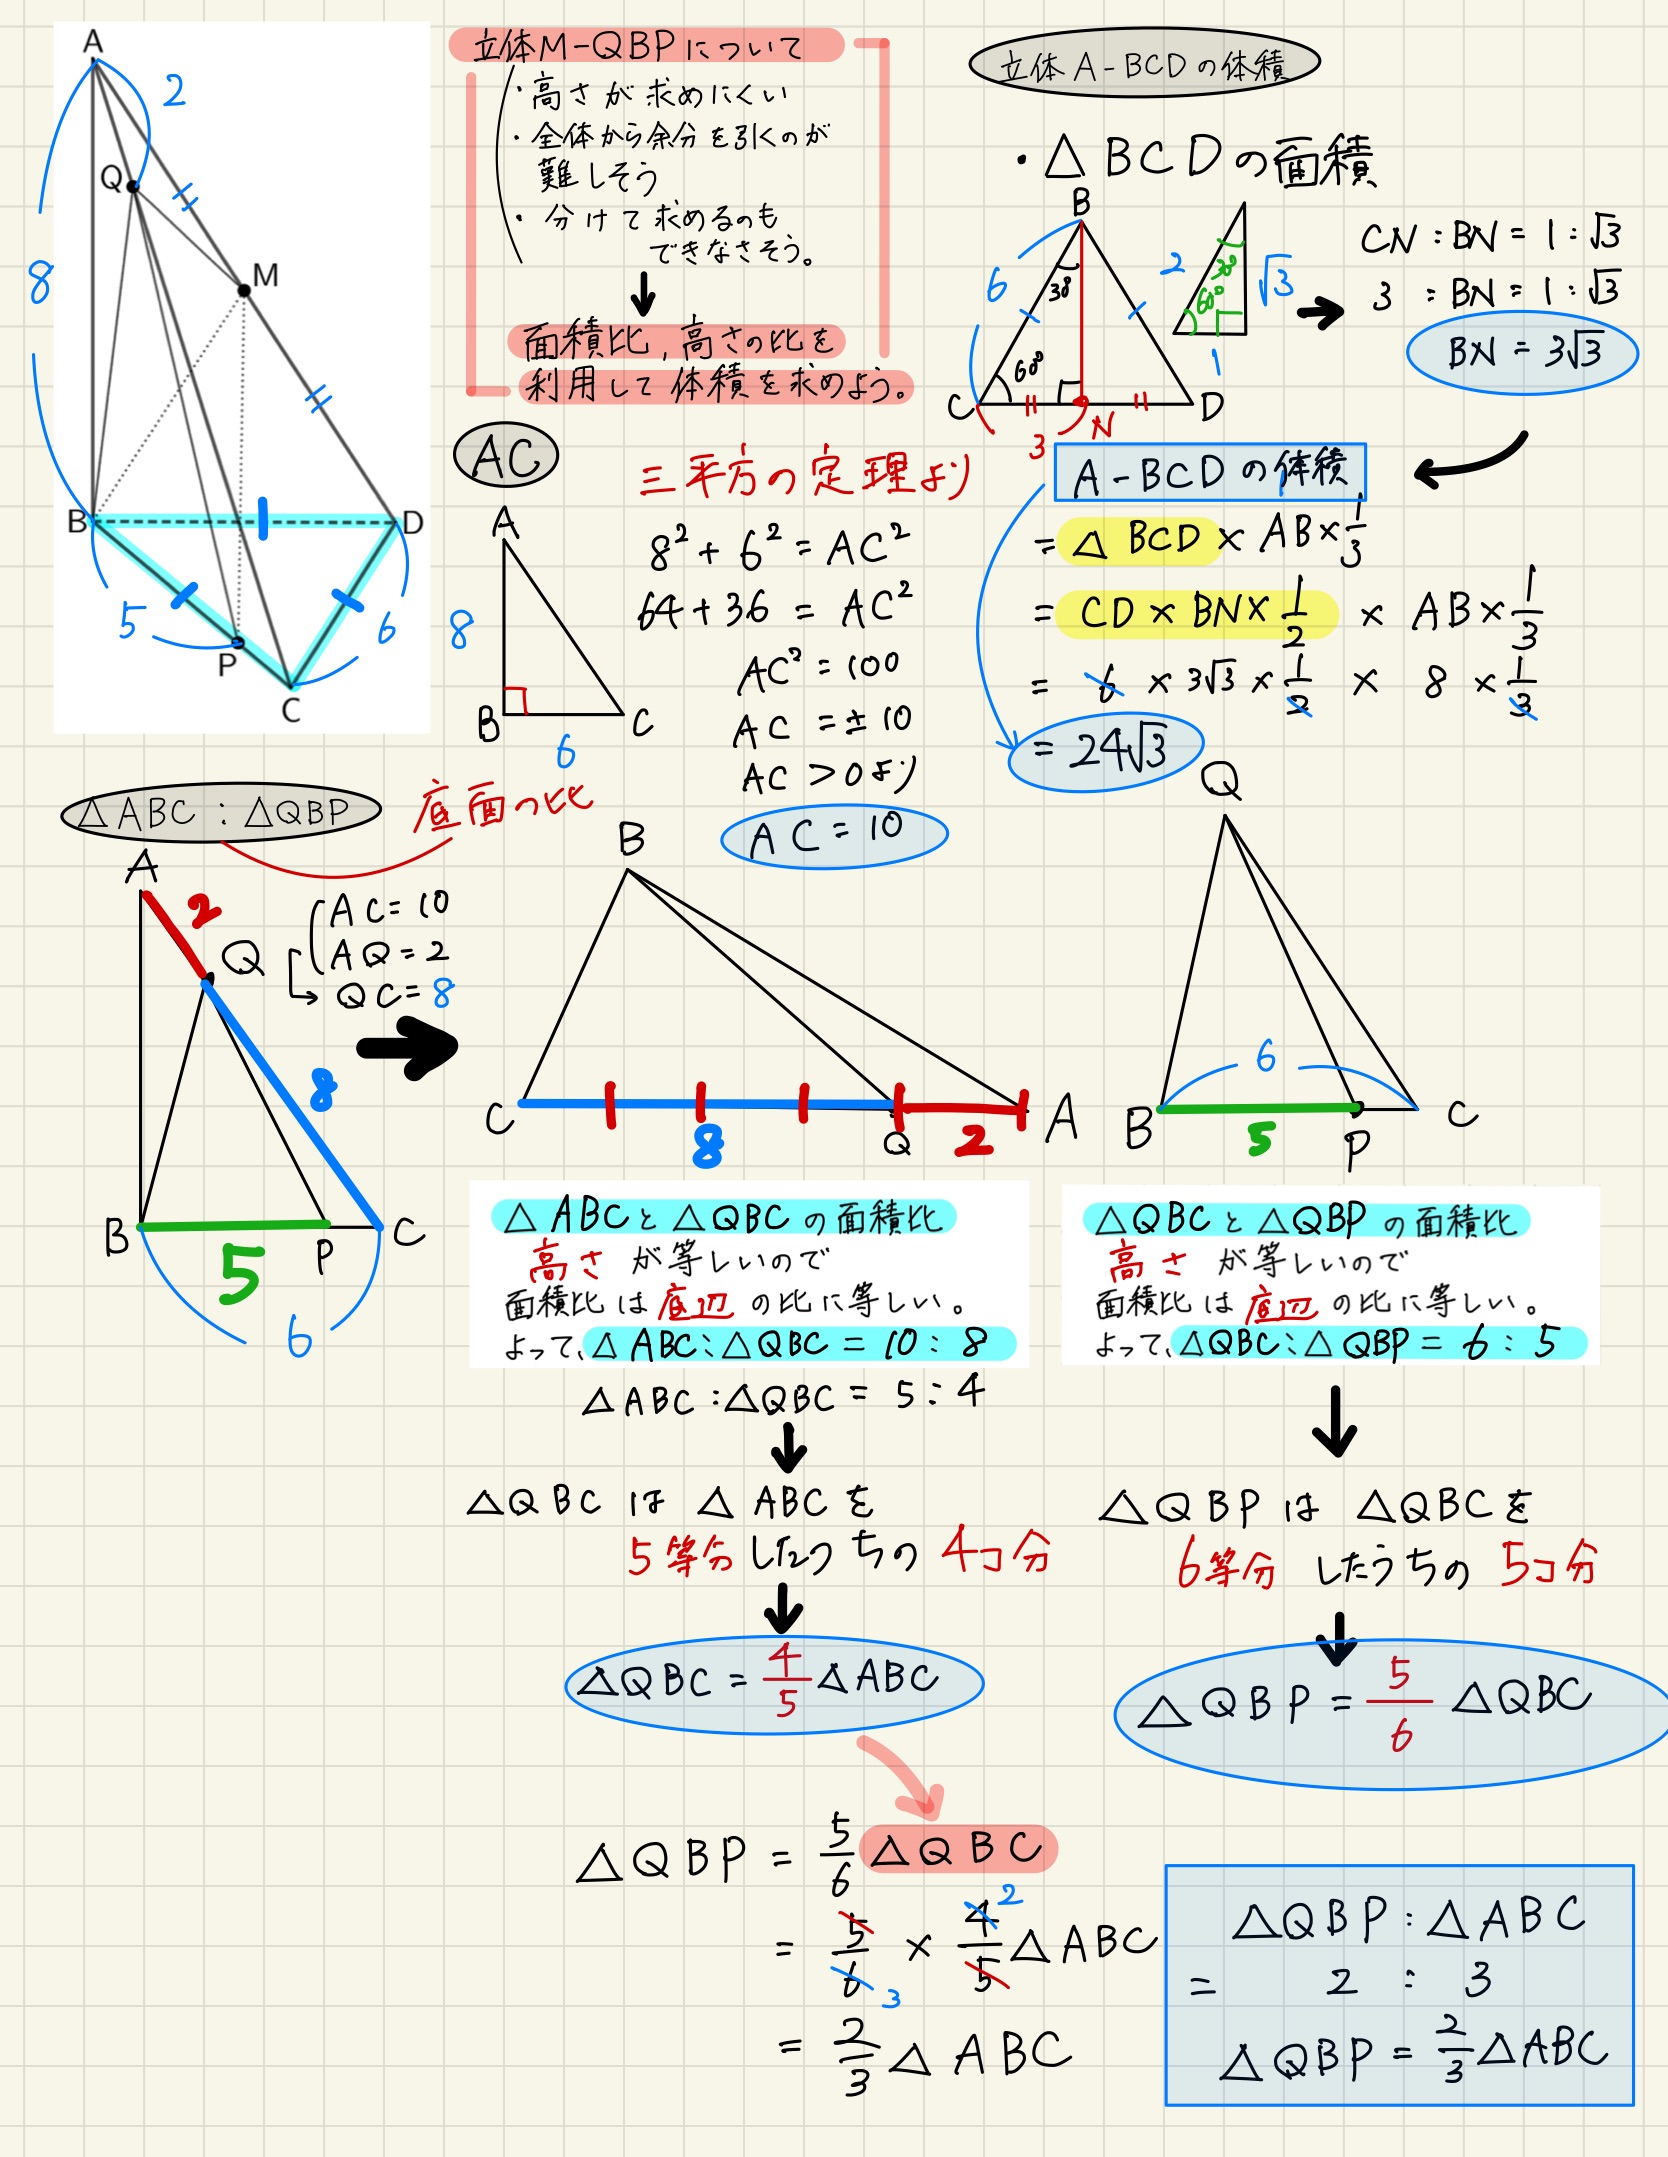 A
2
Q
M
8
B
D
5
6
P
C
立体M-QBPについて
・高さが求めにくい
・全体から余分を引くのが
難しそう
・分けて求めるのも
できなさそう。
面積比,高さの比を
利用して体積を求めよう。
立体A-BCDの体積
・△BCDの面積
B
6
30°
60°
C
D
3
N
2
30°
60°
√3
1
CN:BN=1:√3
3:BN=1:√3
BN=3√3
AC
三平方の定理より
A
8
B
6
C
8²+6²=AC²
64+36=AC²
AC²=100
AC=±10
AC>0より
AC=10
A-BCDの体積
=△BCD×AB×1/3
=CD×BN×1/2×AB×1/3
=6×3√3×1/2×8×1/3
=24√3
△ABC:△QBP
底面の比
A
2
Q
8
B
P
C
5
6
AC=10
AQ=2
QC=8
B
C
8
Q
2
A
Q
6
B
5
P
C
△ABCと△QBCの面積比
高さが等しいので
面積比は底辺の比に等しい。
よって、△ABC:△QBC=10:8
△ABC:△QBC=5:4
△QBCは△ABCを
5等分したうちの4コ分
△QBC=4/5△ABC
△QBCと△QBPの面積比
高さが等しいので
面積比は底辺の比に等しい。
よって、△QBC:△QBP=6:5
△QBPは△QBCを
6等分したうちの5コ分
△QBP=5/6△QBC
△QBP=5/6△QBC
=5/6×4/5△ABC
2
3
=2/3△ABC
△QBP:△ABC
=2:3
△QBP=2/3△ABC